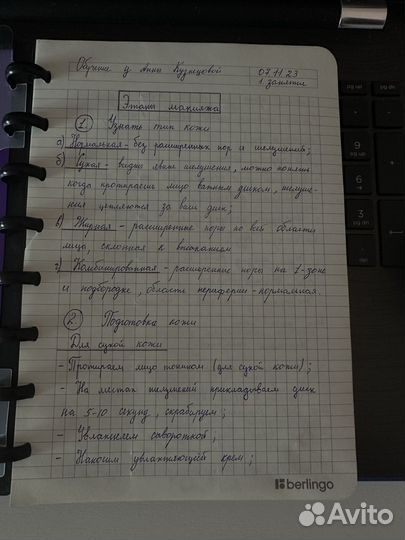 Обучение у Анны Кузнецовой 07.11.23
1 занятие
Этапы макияжа
1 Узнать тип кожи
а) Нормальная - без расширенных пор и шелушений;
б) Сухая - видны явные шелушения, можно понять
когда протираешь лицо ватным диском, шелуше-
ния цепляются за ваш диск;
в) Жирная - расширенные поры по всей области
лица, склонная к высыпаниям
г) Комбинированная - расширенные поры на Т-зоне
и подбородке, область периферии - нормальная
2 Подготовка кожи
Для сухой кожи
- Протираем лицо тоником (для сухой кожи);
- На местах шелушений прикладываем диск
на 5-10 секунд, скрабируем;
- Увлажняем сывороткой;
- Наносим увлажняющий крем;
berlingo
Avito